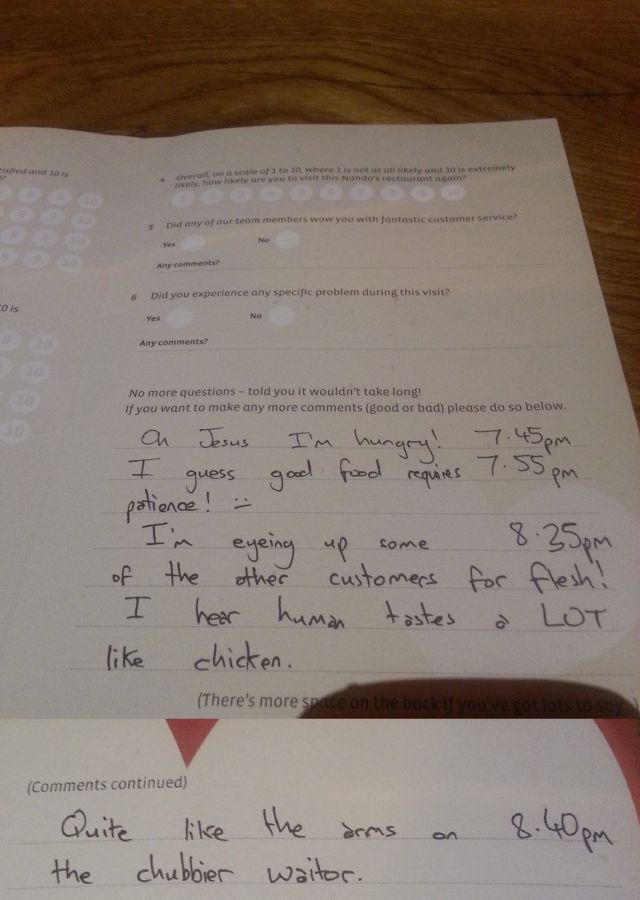 tisfied and 10 is
?
8 9 10
8 9 10
8 9 10
8 9 10
0 is
9 10
10
10
10
4 Overall, on a scale of 1 to 10, where 1 is not at all likely and 10 is extremely
likely, how likely are you to visit this Nando's restaurant again?
1 2 3 4 5 6 7 8 9 10
5 Did any of our team members wow you with fantastic customer service?
Yes No
Any comments?
6 Did you experience any specific problem during this visit?
Yes No
Any comments?
No more questions – told you it wouldn't take long!
If you want to make any more comments (good or bad) please do so below.
Oh Jesus I'm hungry! 7.45pm
I guess good food requires 7.55pm
patience! :)
I'm eyeing up some 8.35pm
of the other customers for flesh!
I hear human tastes a LOT
like chicken.
(There's more space on the back if you've got lots to say.)
(Comments continued)
Quite like the arms on 8.40pm
the chubbier waitor.